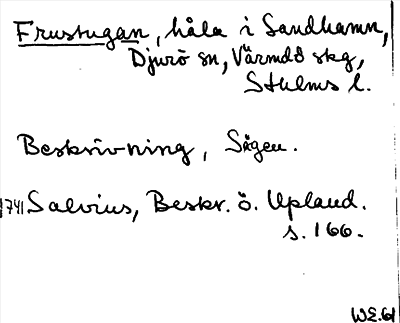 Frustugan, håla i Sandhamn,
Djurö sn, Värmdö skg,
Sthlms l.
Beskrivning, Sägen.
1741 Salvius, Beskr. ö. Upland.
s. 166.
WE.61